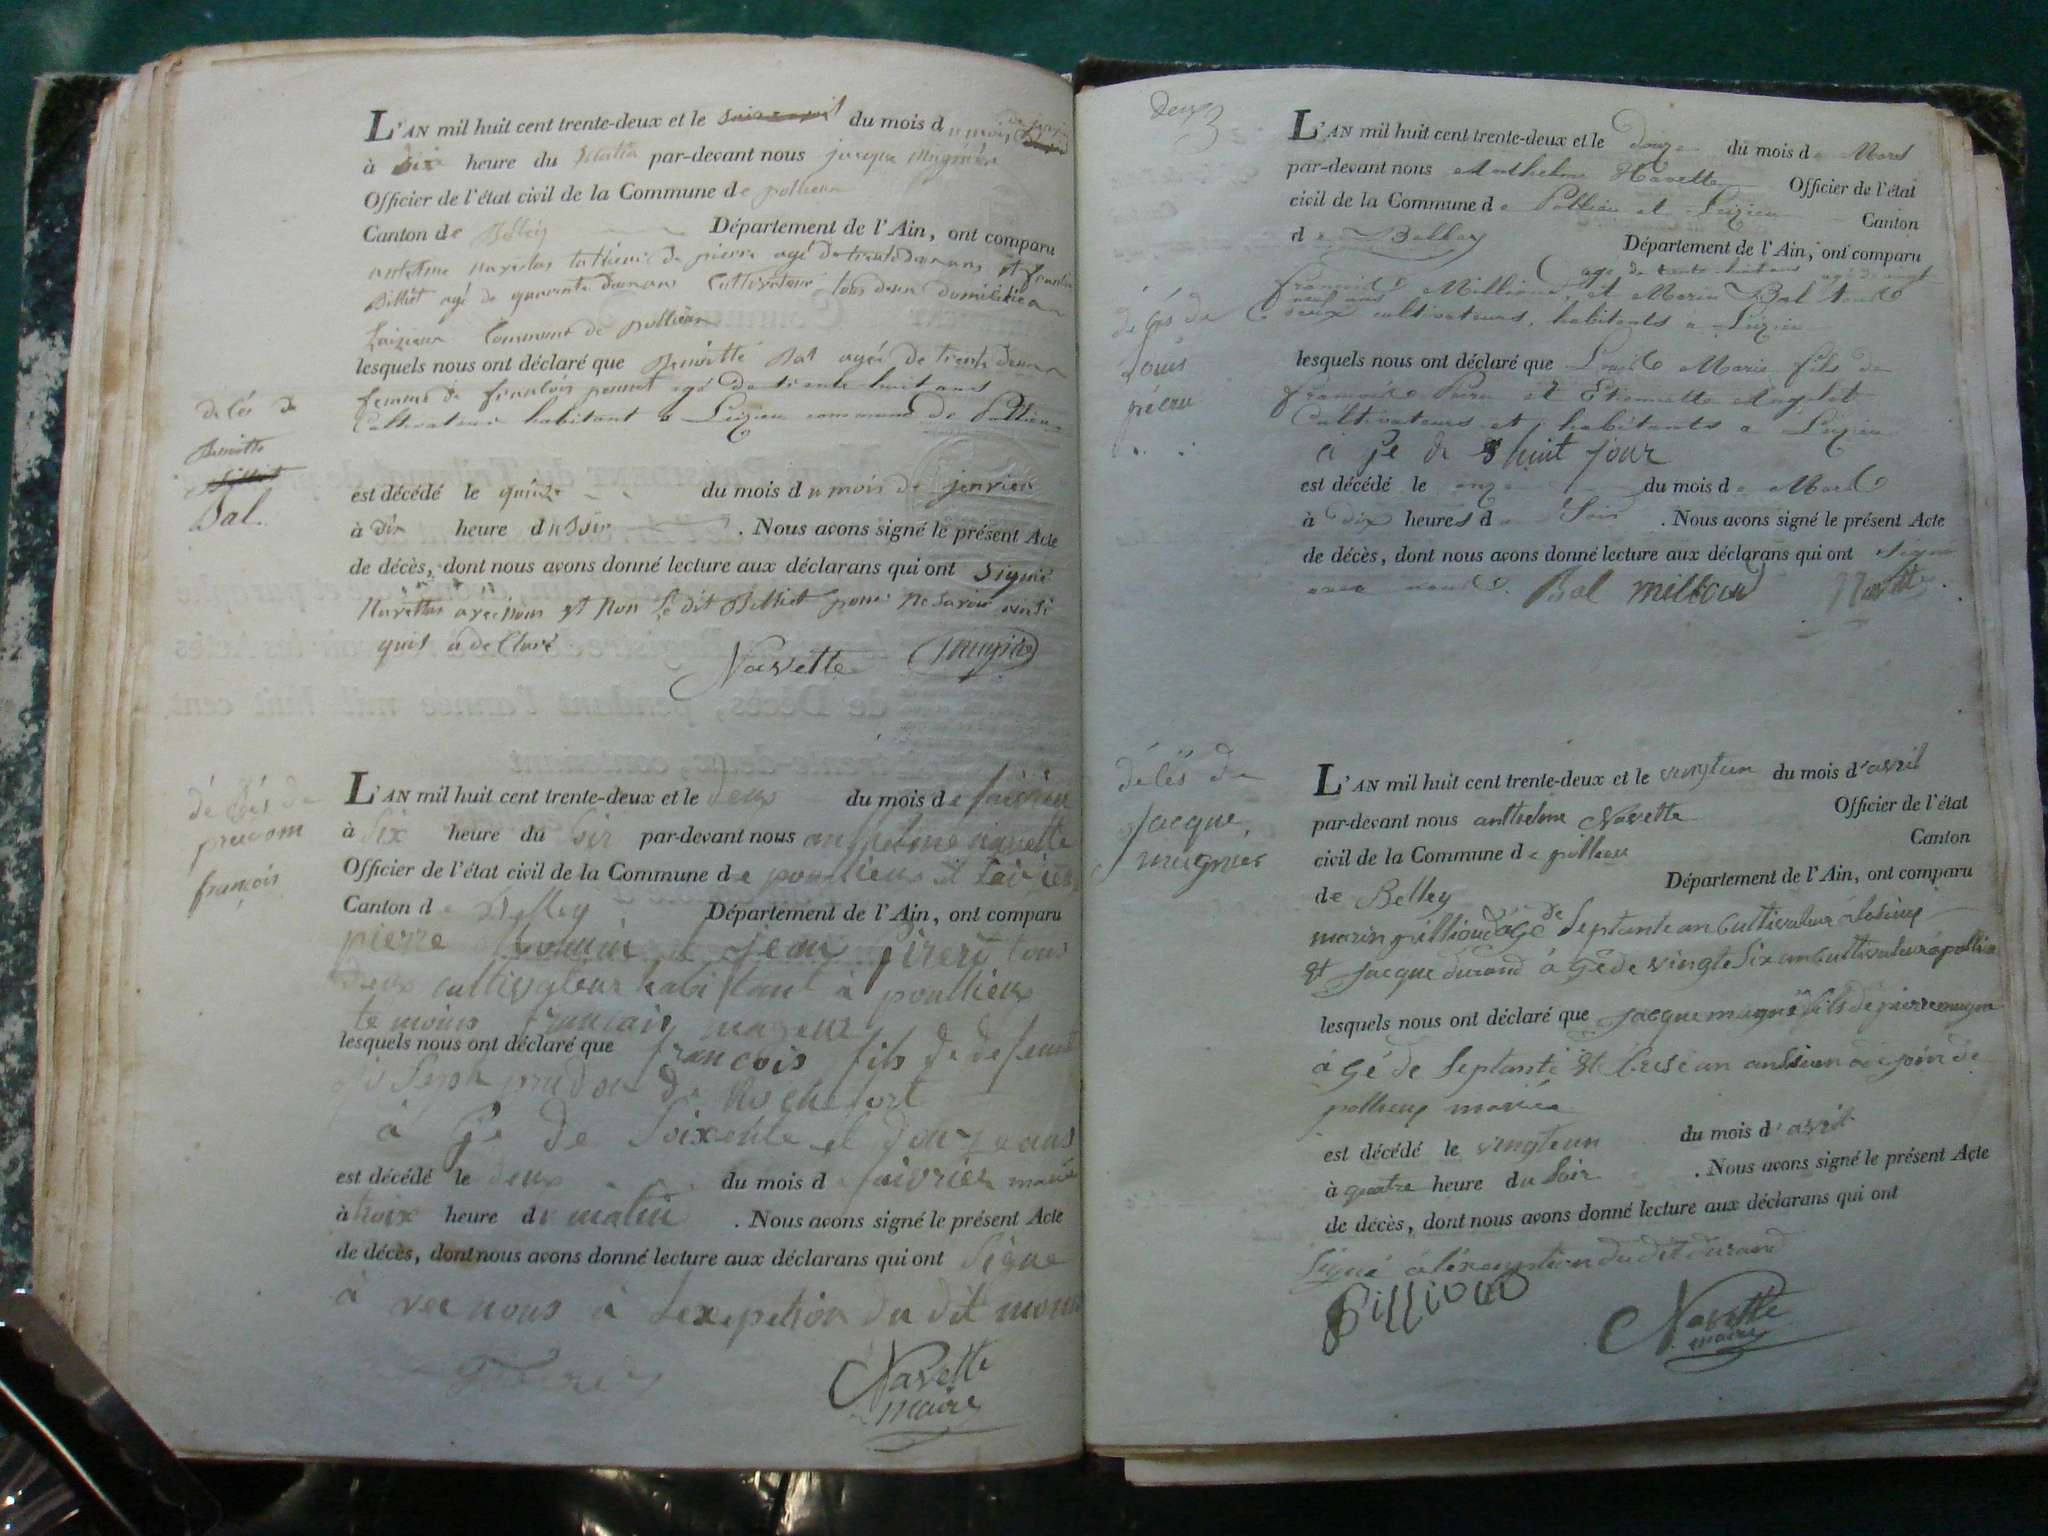 L'AN mil huit cent trente-deux et le du mois du mois de janvier
à dix heure du Matin par-devant nous jacque mugnier
Officier de l'état civil de la Commune de pollieu
Canton de Belley Département de l'Ain, ont comparu
antelme navettas de pierre agé de trente deux ans et
Billiet agé de quarente deux ans Cultivateur tous deux domicilié a
Laizieux Commune de pollieux
lesquels nous ont déclaré que Benoitte Bal agée de trente deux
femme de francois agé de trente huit ans
Cultivateur habitant a Leizieu commune de Pollieu
décés de
Benoitte
Billiet
Bal
est décédé le quinze du mois du mois de jenvier
à dix heure du Soir . Nous avons signé le présent Acte
de décès, dont nous avons donné lecture aux déclarans qui ont Signé
Navettas avec nous et non le dit Billiet pour ne savoir ainsi
quil a declaré
Navette mugnier
décés de
prudom
françois
L'AN mil huit cent trente-deux et le deux du mois de faivrier
à Six heure du Soir par-devant nous anthelme navette
Officier de l'état civil de la Commune de poullieux et Laizieu
Canton de Belley Département de l'Ain, ont comparu
pierre Monin et jean tous
deux cultivateur habitant à poullieux
temoins francais majeur
lesquels nous ont déclaré que francois fils de defeunt
joseph prudon de Rochefort
à Gé de Soixente et douze ans
est décédé le deux du mois de faivrier marié
à troix heure du matin . Nous avons signé le présent Acte
de décès, dont nous avons donné lecture aux déclarans qui ont Signe
à vec nous à Lexepetion du dit monin
Navette
maire
deux
L'AN mil huit cent trente-deux et le douze du mois de Mars
par-devant nous Anthelme Navette Officier de l'état
civil de la Commune de Pollieu et Leizieu Canton
de Belley Département de l'Ain, ont comparu
agé de trente huit ans agé de vingt
François Millioud et Marin Bal tous
neuf ans
deux cultivateurs, habitants a Leizieu
décés de
Louis
lesquels nous ont déclaré que Louis Marie fils de
François et Etiennette
Cultivateurs et habitants a Leizieu
a je de huit jour
est décédé le onze du mois de Mars
à dix heures d Soir . Nous avons signé le présent Acte
de décès, dont nous avons donné lecture aux déclarans qui ont signé
avec nous. Bal millioud Navette
décés de
jacque
mugnier
L'AN mil huit cent trente-deux et le vingteun du mois d'avril
par-devant nous anthelme Navette Officier de l'état
civil de la Commune de pollieu Canton
de Belley Département de l'Ain, ont comparu
marin pillioud agé de Septante an Cultivateur a
et jacque durand à Gé de vingte Six an Cultivateur a pollieu
lesquels nous ont déclaré que jacque mugnie fils de pierre mugnie
à Gé de Septante et trese an ansien adejoin de
pollieux marié
est décédé le vingteun du mois d'avril
à quatre heure du Soir . Nous avons signé le présent Acte
de décès, dont nous avons donné lecture aux déclarans qui ont
Signé à léxception du dit durand
Pillioud Navette
maire